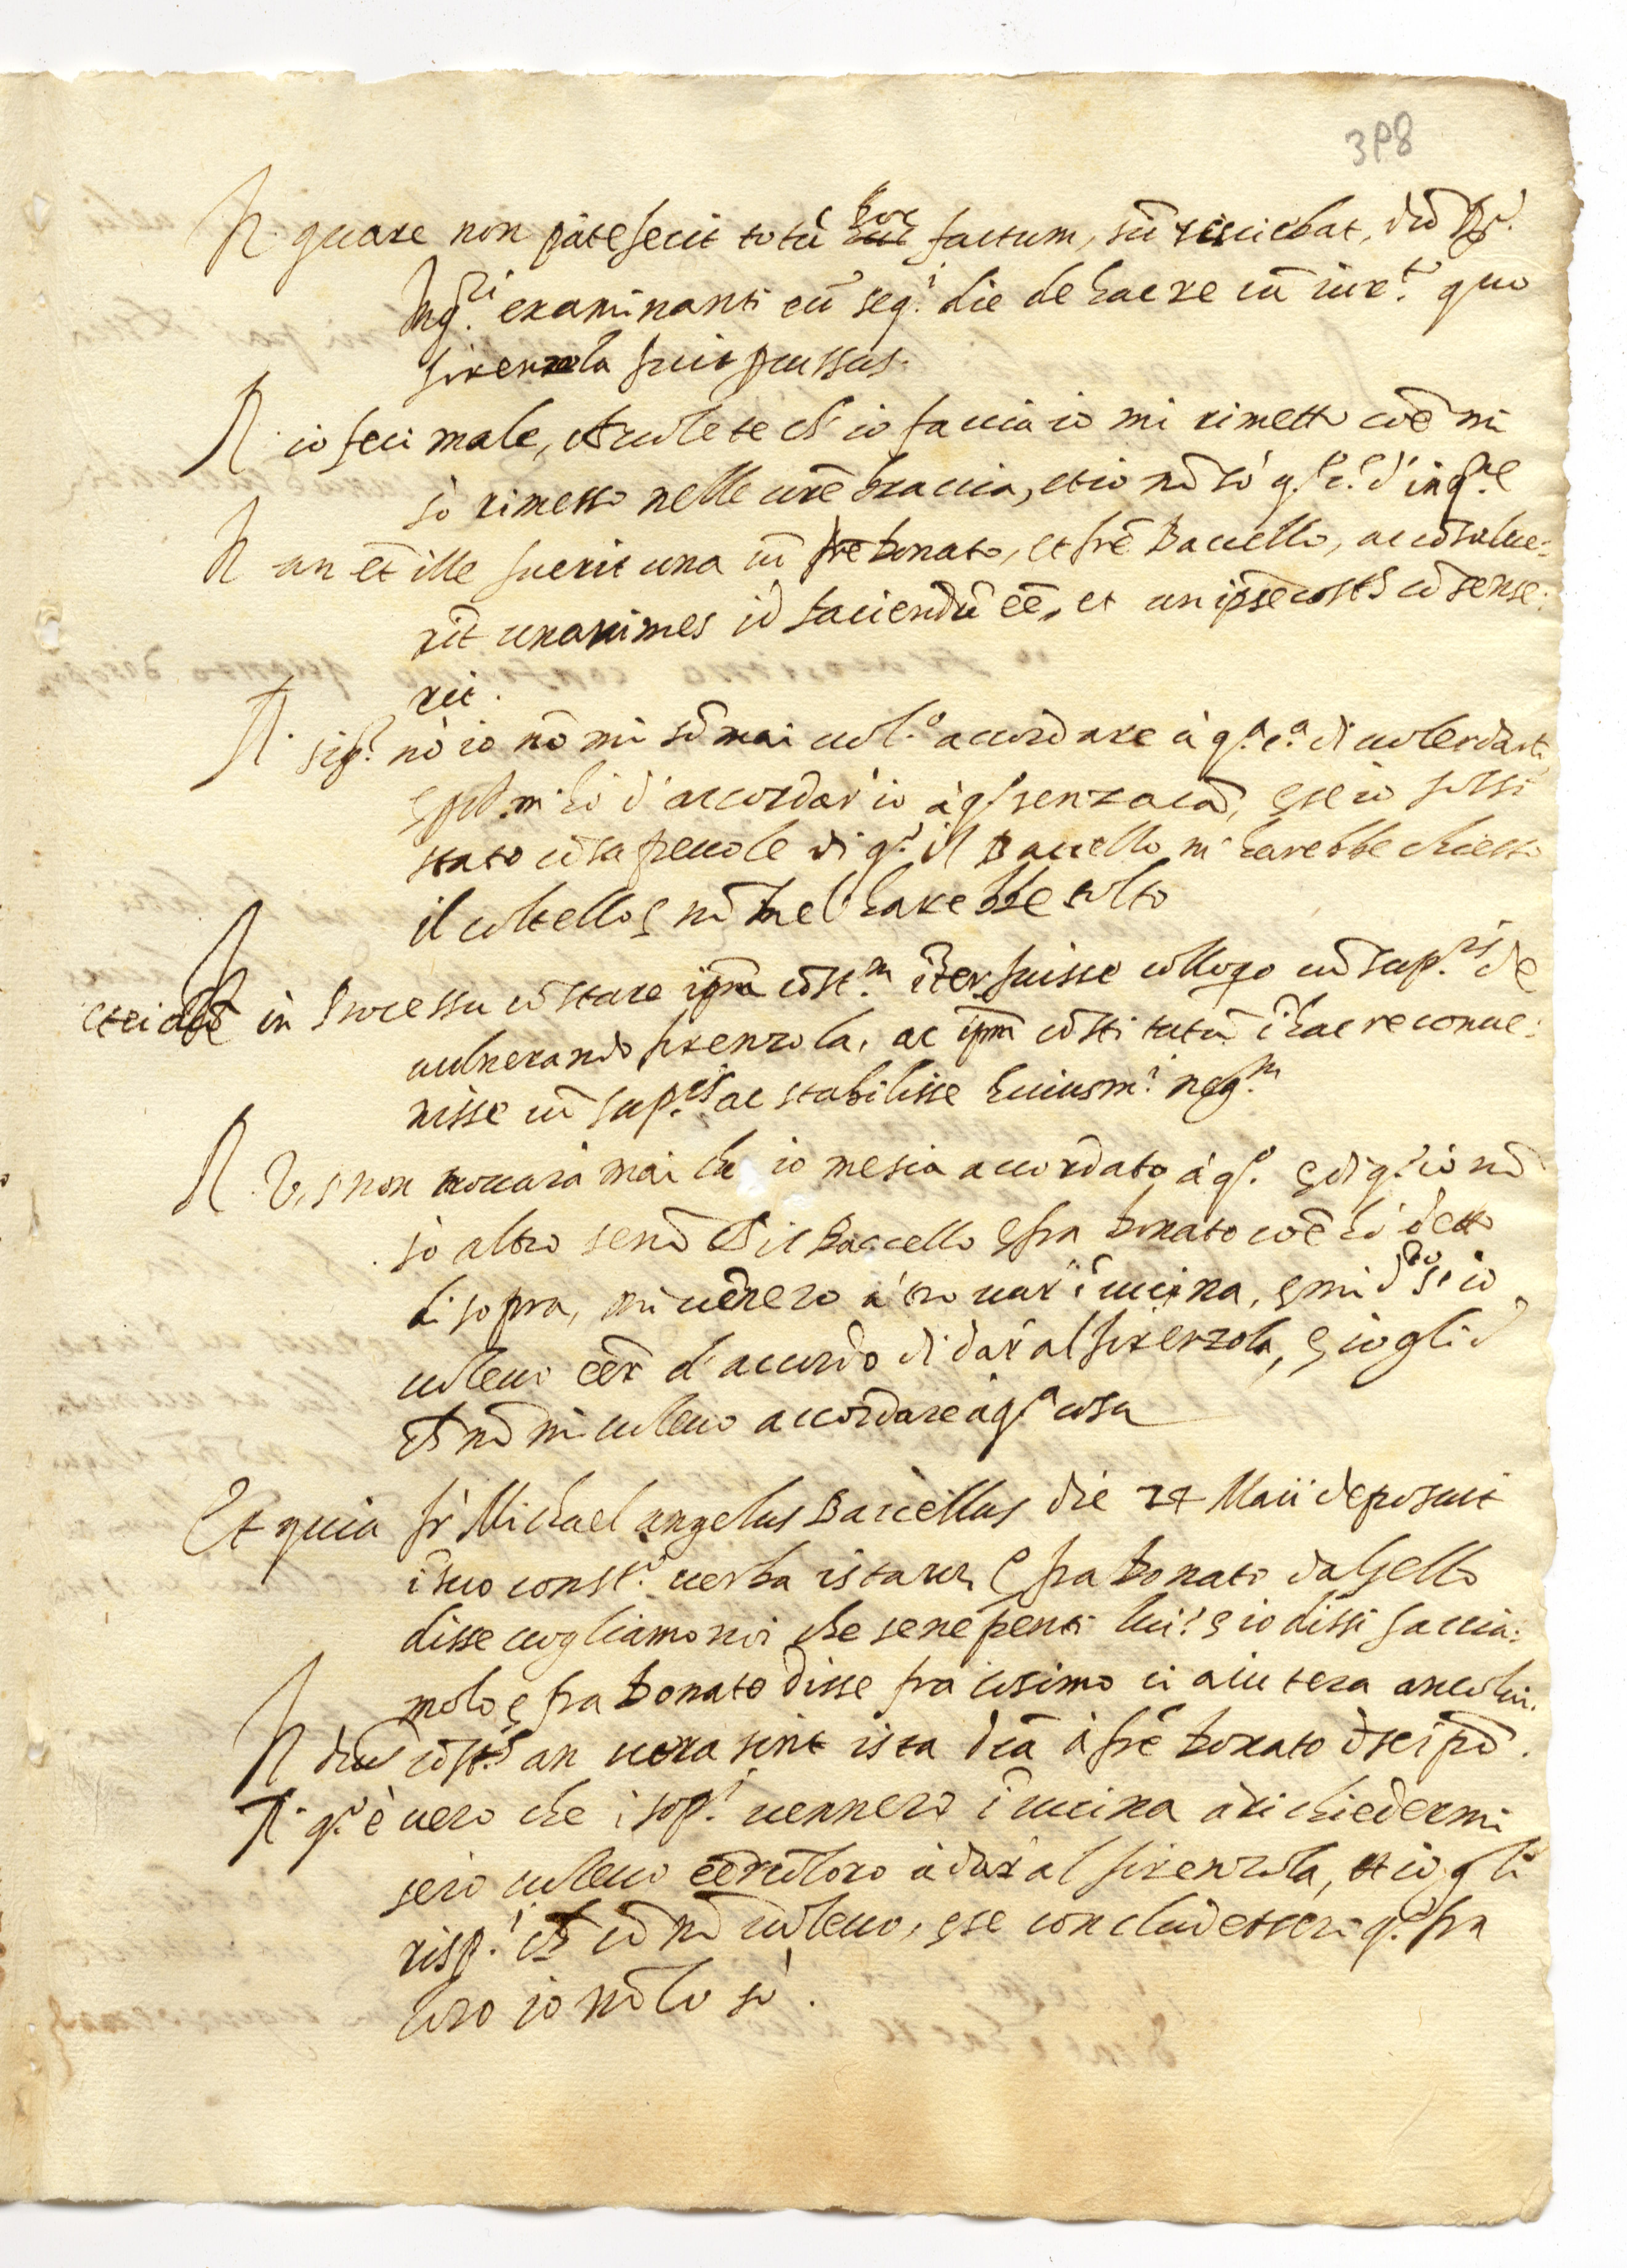 398
R. quare non patefecit totū hoc factum, cū sciebat, dicō Pri.
Inq.ri examinanti eū seq.i die de hac re cū iur.to quo
firenzola fuit percussus.
R. io feci male, che volete ch' io faccia io mi rimetto coē mi
sò rimesso nelle vrē braccia, et io nō sò q.sta c.a d' inq.ne
R an ēt ille fuerit una cū frē Donato, et frē Baccello, ac cōsulue:
rīt unanimes id faciendū eē, et an ipse cōst.s cōsense:
rit.
R. sig.r nò io nō mi sō mai vol.o accordare à q.a c.a di volerdarli
mi hò d'accordar' io à q.sto senza cā, e se io fossi
stato cōsapevole di q.o il Baccello mi harebbe chiesto
il coltello e nō me l'harebbe tolto
Et ei dicō in Processu cōstare ipm cōst.m īterfuisse colloqo cū sup.tis de
vulnerando firenzola, ac ipm cōstitutū ī hac re conve:
nisse cū sup.tis ac stabilisse huiusm.i neg.m
R. V. S. non trovarà mai che io me sia accordato à q.o e di q.sto io nō
sò altro senō ch' il Baccello e fra Donato coē hò detto
di sopra, mi vēnero à trovar' ī cucina, e mi d.o se io
volevo eēr d'accordo di dar' al firenzola, e io gli d
ch' nō mi volevo accordare à q.sta cosa
Et quia fr. Michael angelus Baccellus die 24 Maii deposuit
ī suo const.o verba ista e fra Donato da Gello
disse vogliamo noi che se ne penti lui? e io dissi faccia:
molo e fra Donato disse fra Cosimo ci aiutera anco lui.
R dicat cōst.s an vera sint ista dcā à frē Donato d seipō.
R. q.o è vero che i sop.i vennero ī cucina à richiedermi
se io volevo eēr cō loro à dar' al firenzola, et io gli
risp.i ch' iō nō volevo, e se concludessero q.o fra
loro io nō lo sò.